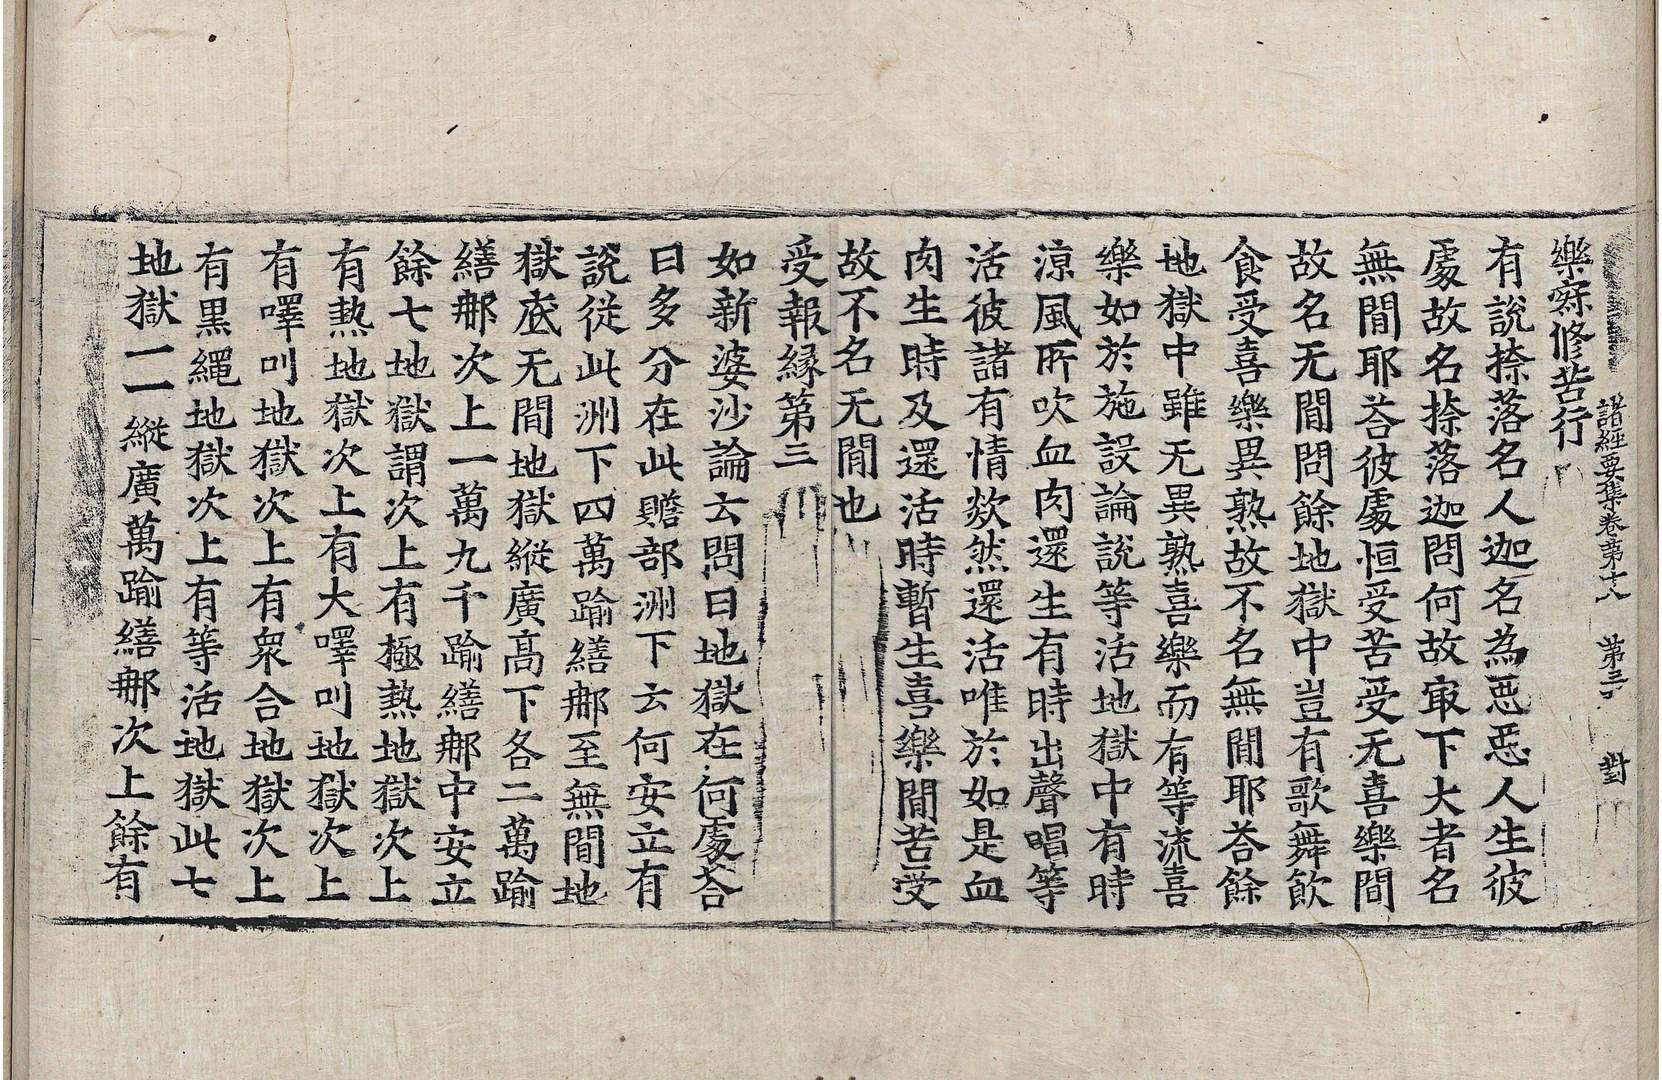 諸經要集卷第十八 第三 對
樂寂修苦行
有說捺落名人迦名為惡惡人生彼
處故名捺落迦問何故㝡下大者名
無間耶荅彼處恒受苦受无喜樂間
故名无間問餘地獄中豈有歌舞飲
食受喜樂異熟故不名無間耶荅餘
地獄中雖无異熟喜樂而有等流喜
樂如於施設論說等活地獄中有時
涼風所吹血肉還生有時出聲唱等
活彼諸有情欻然還活唯於如是血
肉生時及還活時暫生喜樂間苦受
故不名无間也
受報緣第三
如新婆沙論云問曰地獄在何處荅
曰多分在此贍部洲下云何安立有
說從此洲下四萬踰繕那至無間地
獄底无間地獄縱廣高下各二萬踰
繕那次上一萬九千踰繕那中安立
餘七地獄謂次上有極熱地獄次上
有熱地獄次上有大嘷叫地獄次上
有嘷叫地獄次上有衆合地獄次上
有黑繩地獄次上有等活地獄此七
地獄一一縱廣萬踰繕那次上餘有